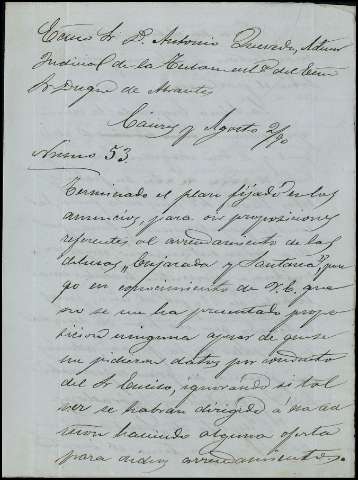 Excmo Sr D. Antonio Quevedo, Admor
Judicial de la Testament.ª del Exmo
Sr Duque de Abrantes
Cáceres y Agosto 2/90
Numo 53
Terminado el plazo fijado en los
anuncios, para oir proposiciones
referentes al arrendamiento de las
dehesas, "Enjarada y Santana", pon-
go en conocimiento de V.E. que
no se me ha presentado propo-
sicion ninguna apesar de que se
me pidieron datos por conducto
del Sr Enciso, ignorando si tal
vez se habrán dirigido á esa ad-
cion haciendo alguna oferta
para dichos arrendamientos.